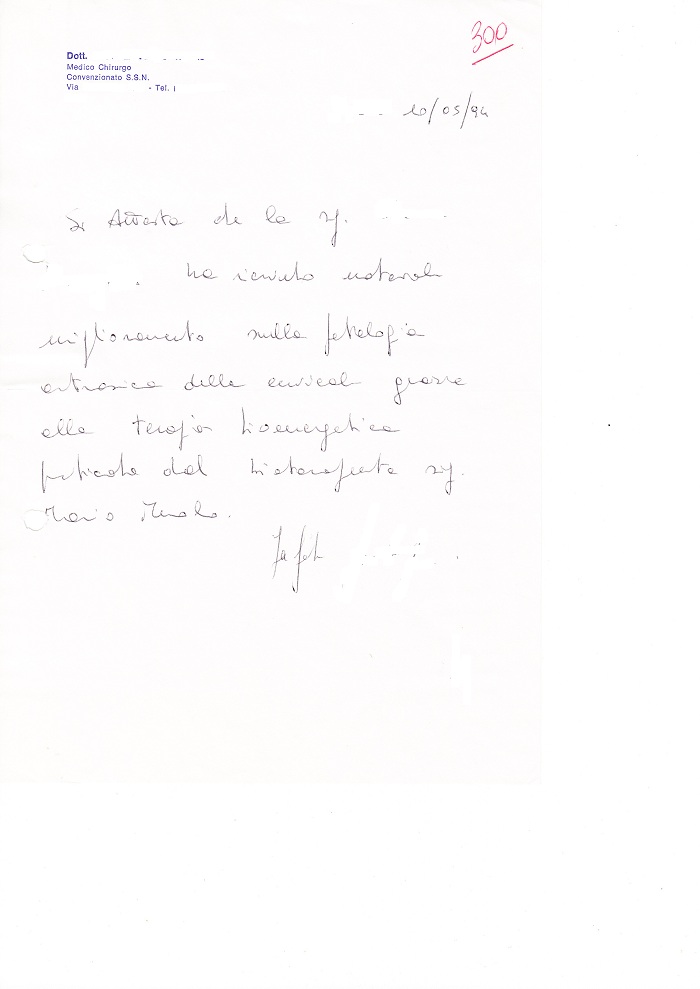 300
Dott.
Medico Chirurgo
Convenzionato S.S.N.
Via - Tel.
10/05/94
Si Attesta che la sig.
ha ricevuto notevole
miglioramento sulla patologia
artrosica della cervicale grazie
alla terapia bioenergetica
praticata dal bioterapeuta sig.
Mario